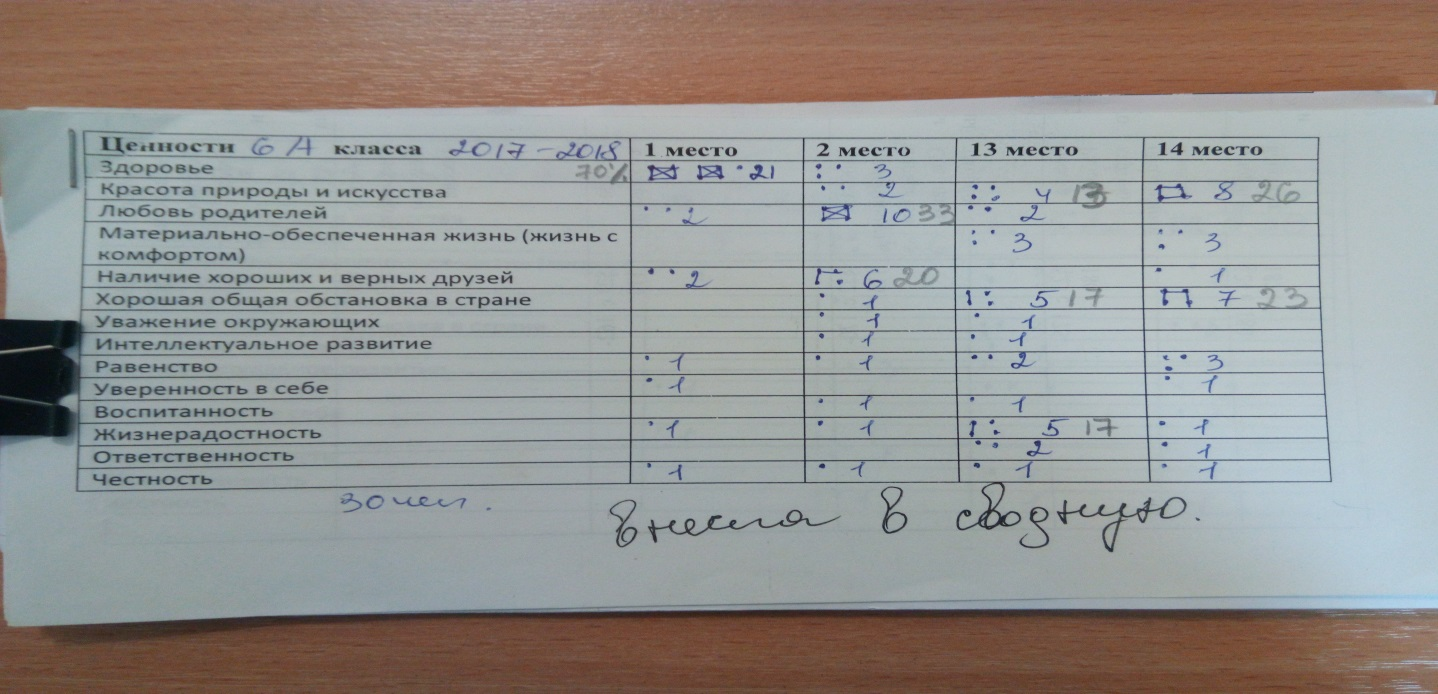 Ценности 6 А класса 2017-2018 1 место 2 место 13 место 14 место
Здоровье 70% 21 3
Красота природы и искусства 2 4 13 8 26
Любовь родителей 2 10 33 2
Материально-обеспеченная жизнь (жизнь с
комфортом) 3 3
Наличие хороших и верных друзей 2 6 20 1
Хорошая общая обстановка в стране 1 5 17 7 23
Уважение окружающих 1 1
Интеллектуальное развитие 1 1
Равенство 1 1 2 3
Уверенность в себе 1 1
Воспитанность 1 1
Жизнерадостность 1 1 5 17 1
Ответственность 2 1
Честность 1 1 1 1
30 чел.
Внесла в сводную.